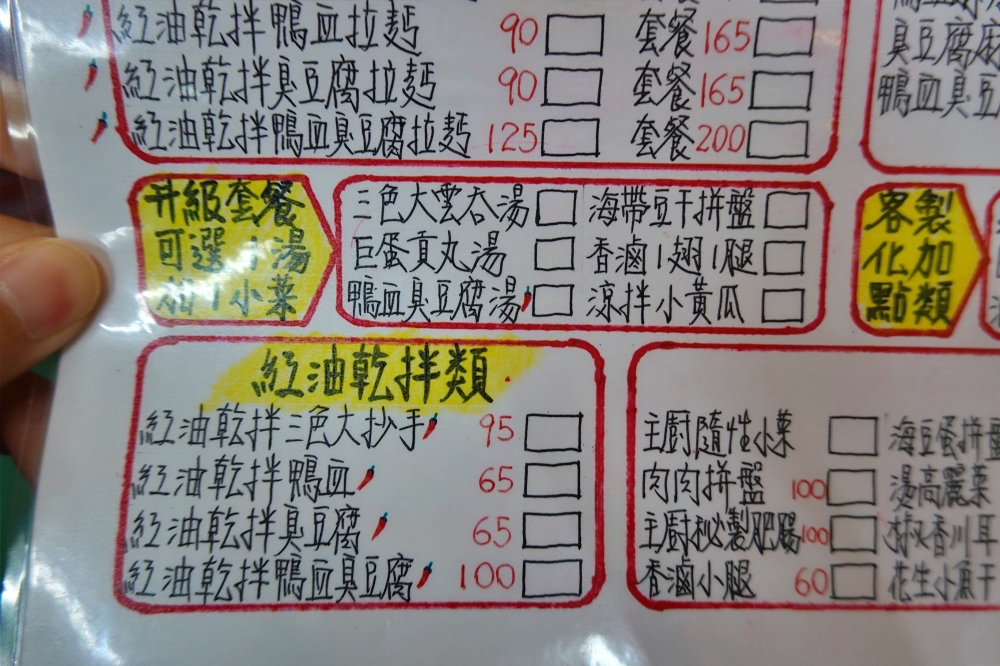 紅油乾拌鴨血拉麵 90 套餐165
紅油乾拌臭豆腐拉麵 90 套餐165
紅油乾拌鴨血臭豆腐拉麵 125 套餐200
臭豆腐
鴨血臭豆
升級套餐
可選1湯
加1小菜
三色大雲吞湯 海帶豆干拼盤
巨蛋貢丸湯 香滷1翅1腿
鴨血臭豆腐湯 涼拌小黃瓜
客製
化加
點類
紅油乾拌類
紅油乾拌三色大抄手 95
紅油乾拌鴨血 65
紅油乾拌臭豆腐 65
紅油乾拌鴨血臭豆腐 100
主廚隨性小菜 海豆蛋拼盤
肉肉拼盤 100 燙高麗菜
主廚秘製肥腸 100 椒香川耳
香滷小腿 60 花生小魚干